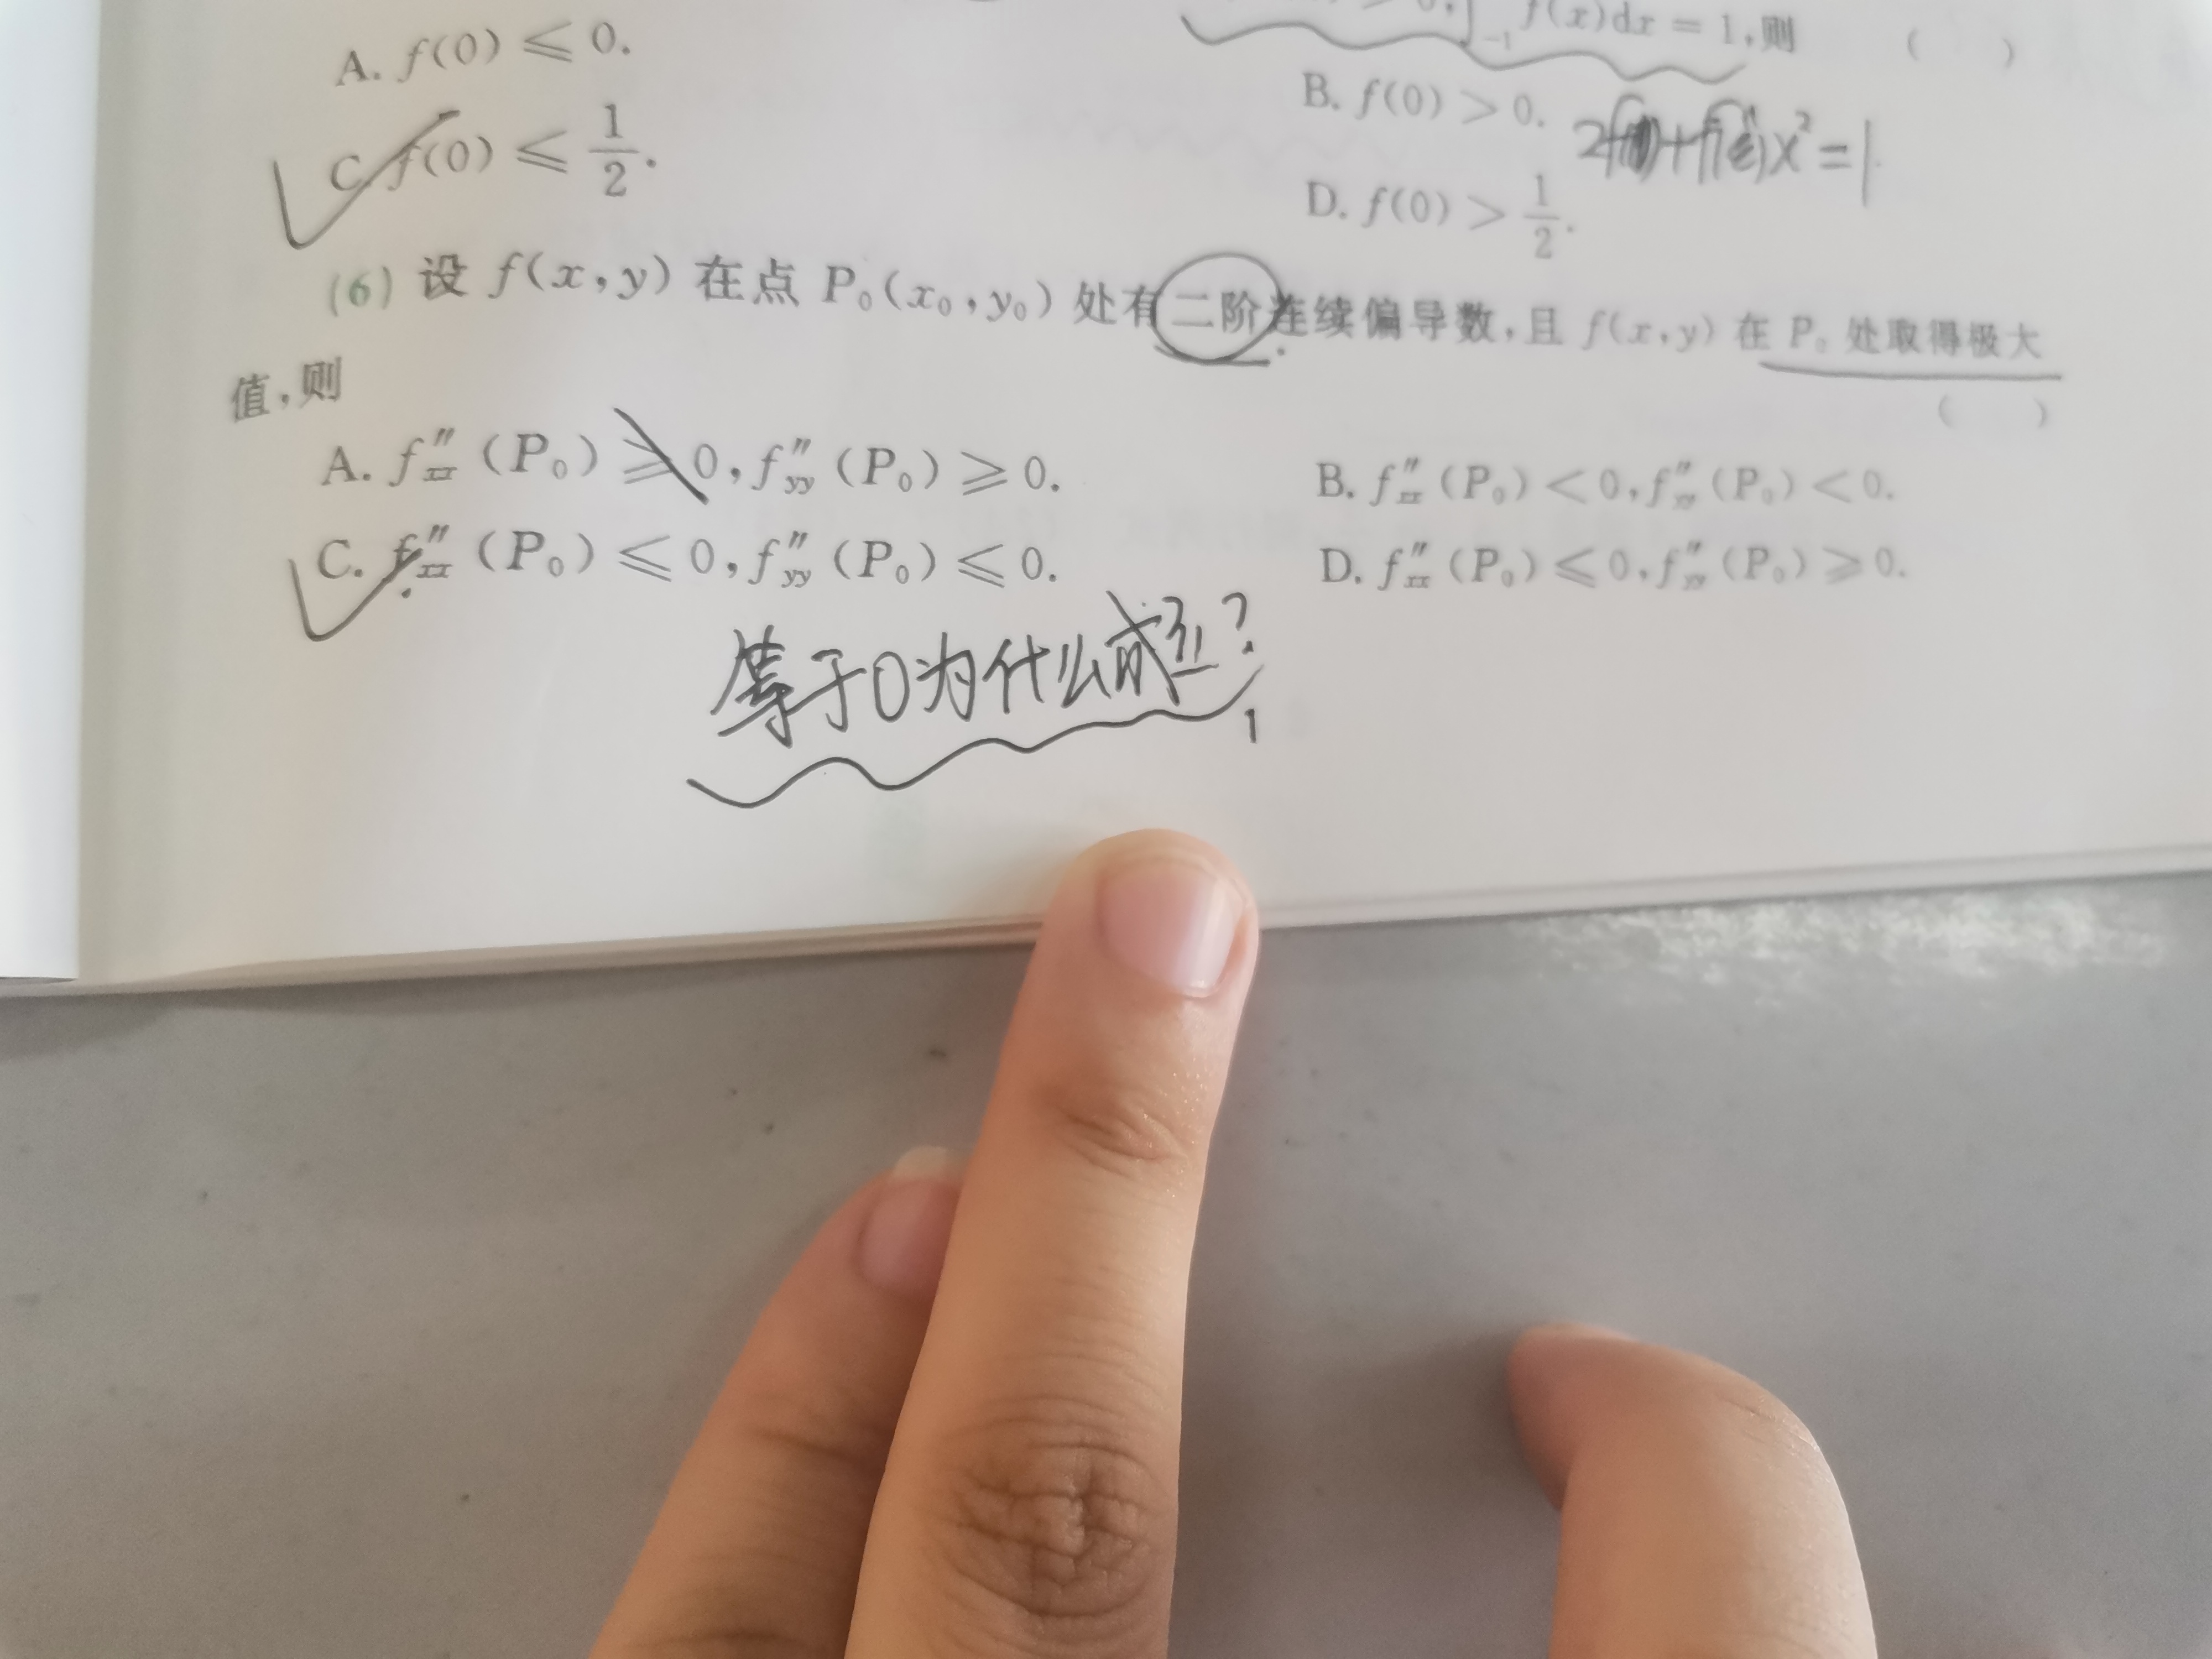 f(x)dx = 1,则 (  )
A. f(0) ≤ 0.
B. f(0) > 0.
C. f(0) ≤ 1/2.
D. f(0) > 1/2.
(6) 设 f(x,y) 在点 P₀(x₀,y₀) 处有二阶连续偏导数,且 f(x,y) 在 P₀ 处取得极大
值,则 (  )
A. f″xx(P₀) ≥ 0,f″yy(P₀) ≥ 0.
B. f″xx(P₀) < 0,f″yy(P₀) < 0.
C. f″xx(P₀) ≤ 0,f″yy(P₀) ≤ 0.
D. f″xx(P₀) ≤ 0,f″yy(P₀) ≥ 0.
等于0为什么成立?